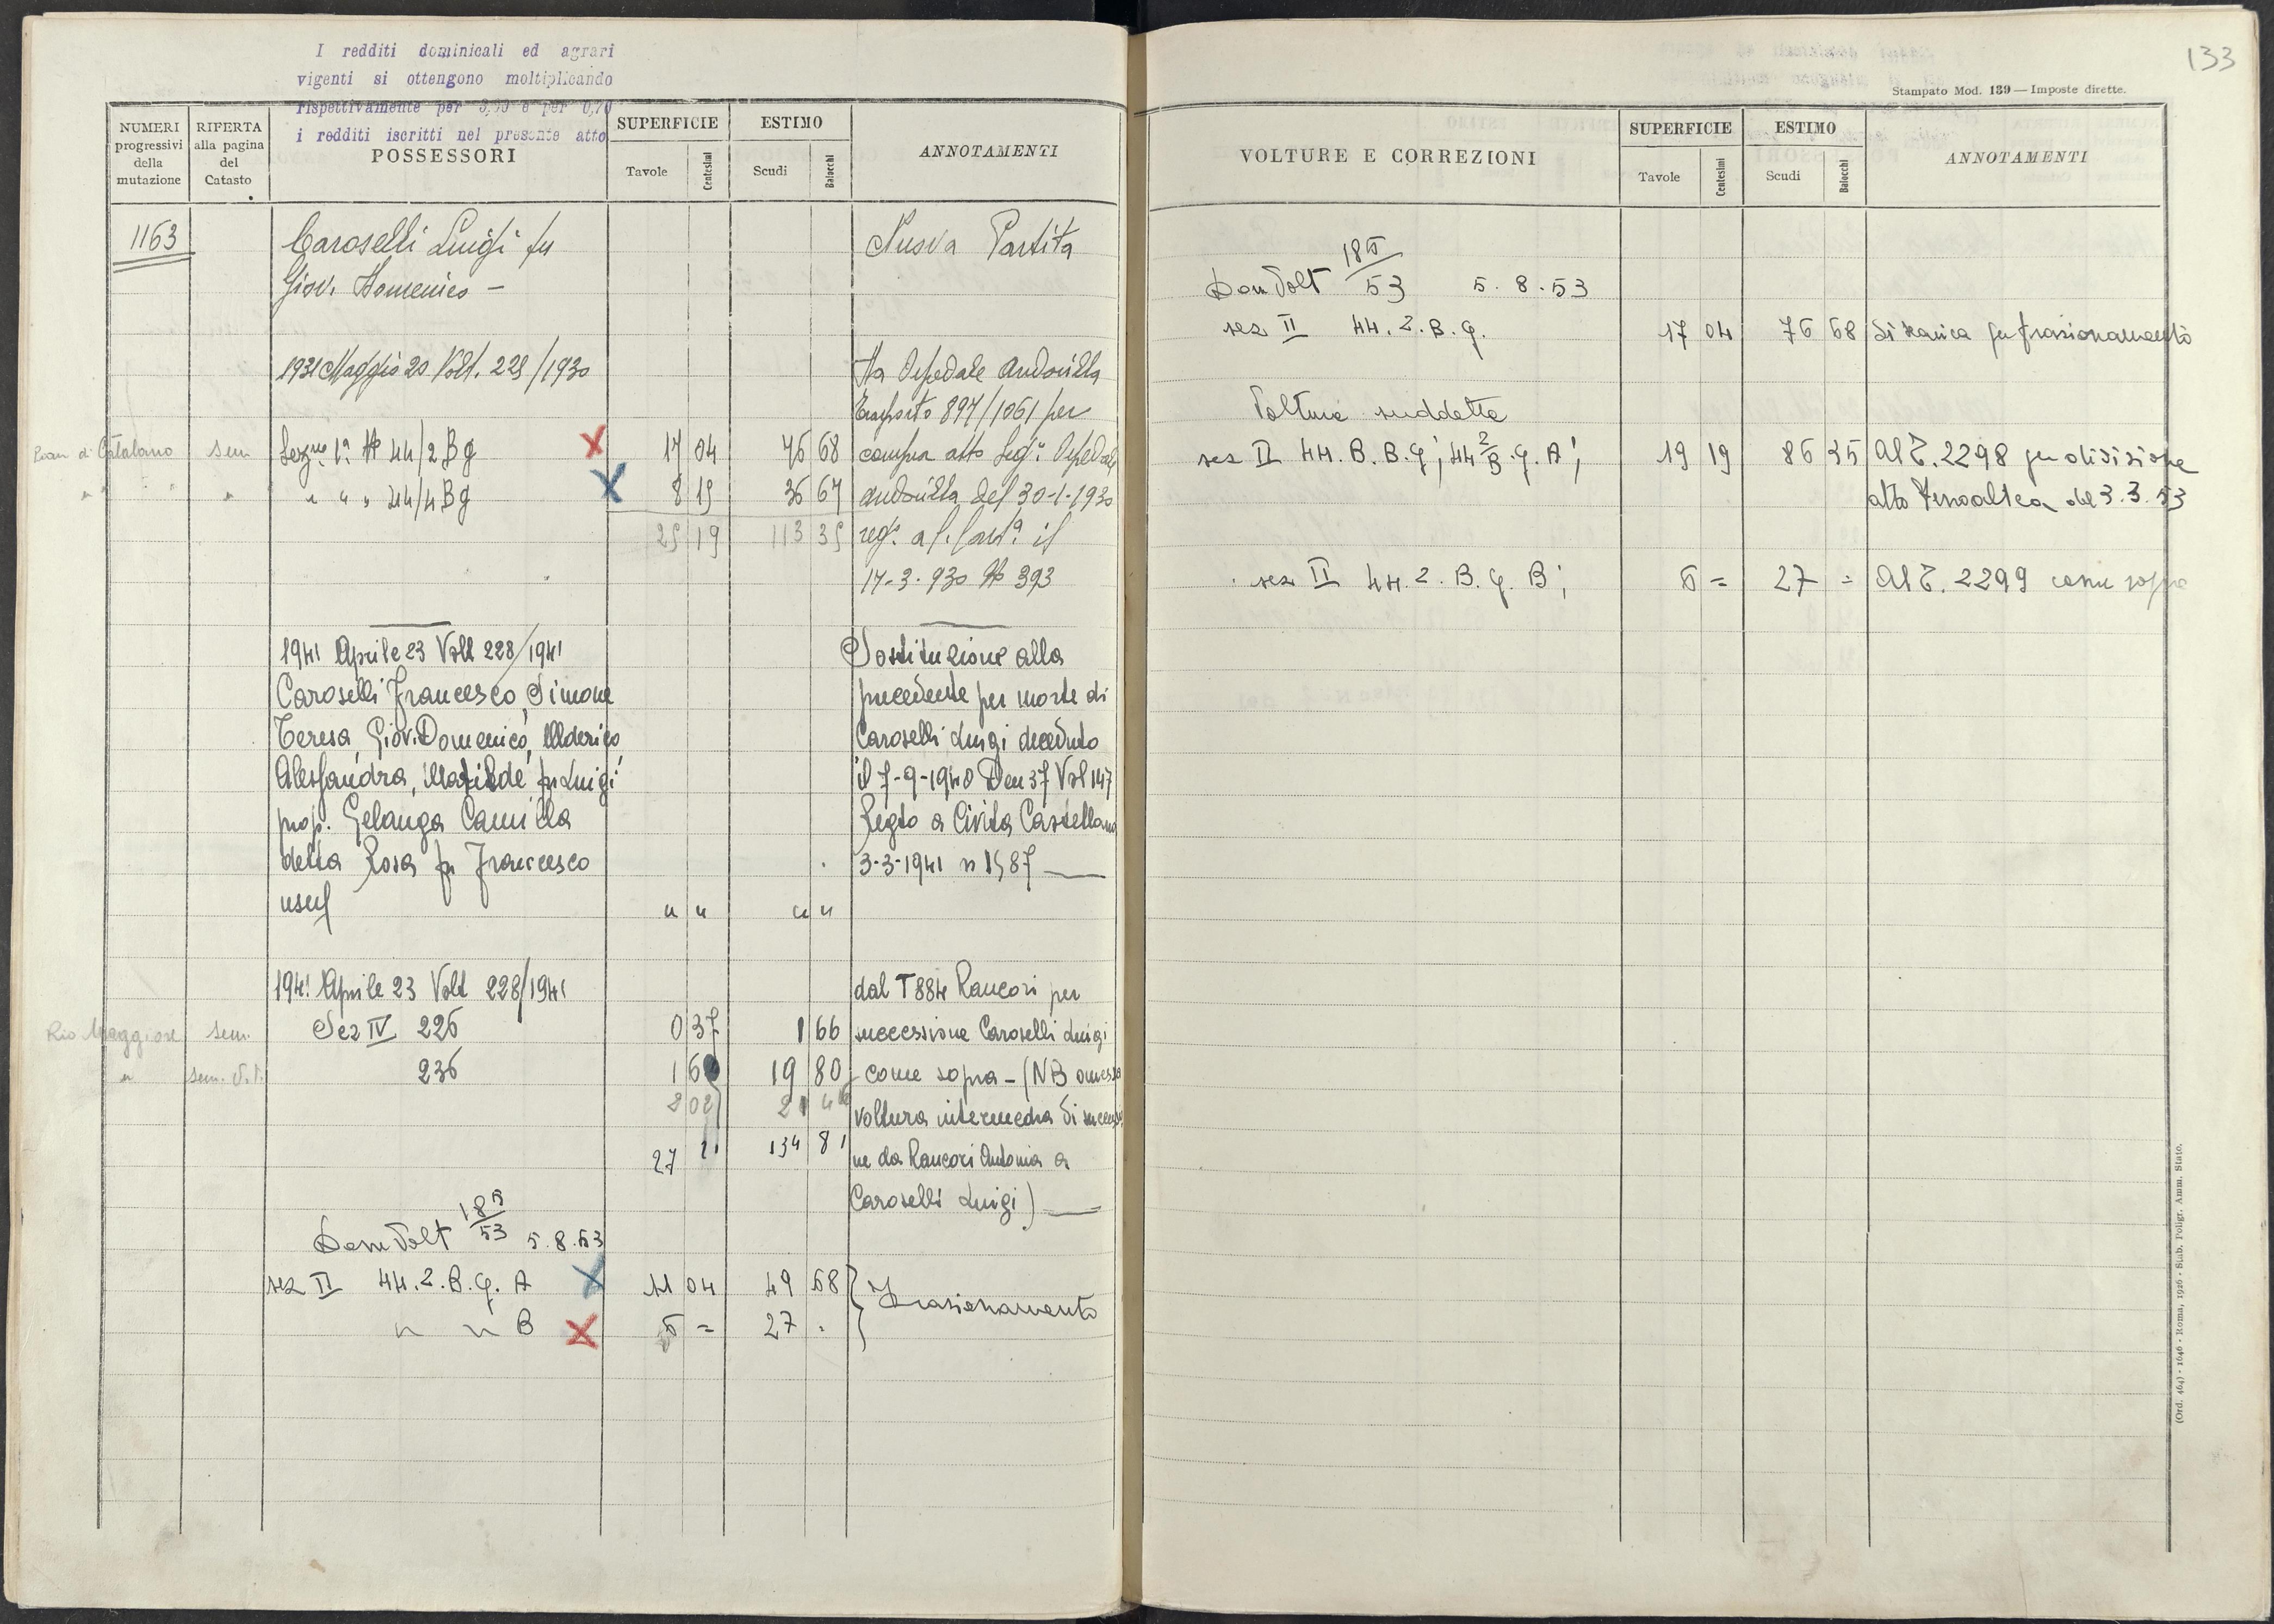 I redditi dominicali ed agrari
vigenti si ottengono moltiplicando
rispettivamente per 3,50 e per 0,70
i redditi iscritti nel presente atto
NUMERI progressivi della mutazione
RIFERTA alla pagina del Catasto
POSSESSORI
SUPERFICIE
Tavole Centesimi
ESTIMO
Scudi Baiocchi
ANNOTAMENTI
1163 Caroselli Luigi fu Nuova Partita
Giov. Domenico –
1931 Maggio 20 Volt. 229/1930 Ospedale Andosilla
Trasporto 897/1061 per
Pian di Catalano sem Sez.ne 1ª N 44/2 Bg 17 04 76 68 compra atto Seg.: Ospedale
" " " " " " " 44/4 Bg 8 15 36 67 Andosilla del 30-1-1930
25 19 113 35 reg. a C. Cast.ª il
17-3-930 N 393
1941 Aprile 23 Volt 228/1941 Sostituzione alla
Caroselli Francesco, Simone precedente per morte di
Teresa, Giov. Domenico, Alderico Caroselli Luigi deceduto
Alessandra, Matilde fu Luigi il 7-9-1940 Den 37 Vol 147
prop. Gelanga Camilla Regto a Civita Castellana
detta Rosa fu Francesco 3-3-1941 n 1587 —
usuf " " " "
1941 Aprile 23 Volt 228/1941 dal T 884 Rancori per
Rio Maggiore sem. Sez IV 225 0 37 1 66 successione Caroselli Luigi
" sem. V.T. 236 1 6 19 80 come sopra – (NB omessa
2 02 21 4 voltura intermedia di successio
27 21 134 81 ne da Rancori Antonia a
Caroselli Luigi) —
Dom Volt 185/53 5.8.53
sez II 44.2.B.g. A 12 04 49 68 } Frazionamento
" " B 5 = 27 .
133
Stampato Mod. 139 — Imposte dirette.
VOLTURE E CORREZIONI
SUPERFICIE
Tavole Centesimi
ESTIMO
Scudi Baiocchi
ANNOTAMENTI
Dom Volt 185/53 5.8.53
sez II 44.2.B.g. 17 04 76 68 Si scarica per frazionamento
Volture suddette
sez II 44.B.B.g; 44 2/B.g.A; 19 19 86 35 Al T. 2298 per divisione
atto Fenoaltea del 3.3.53
sez II 44.2.B.g.B; 5 = 27 = Al T. 2299 come sopra
(Ord. 464) - 1646 - Roma, 1926 - Stab. Poligr. Amm. Stato.